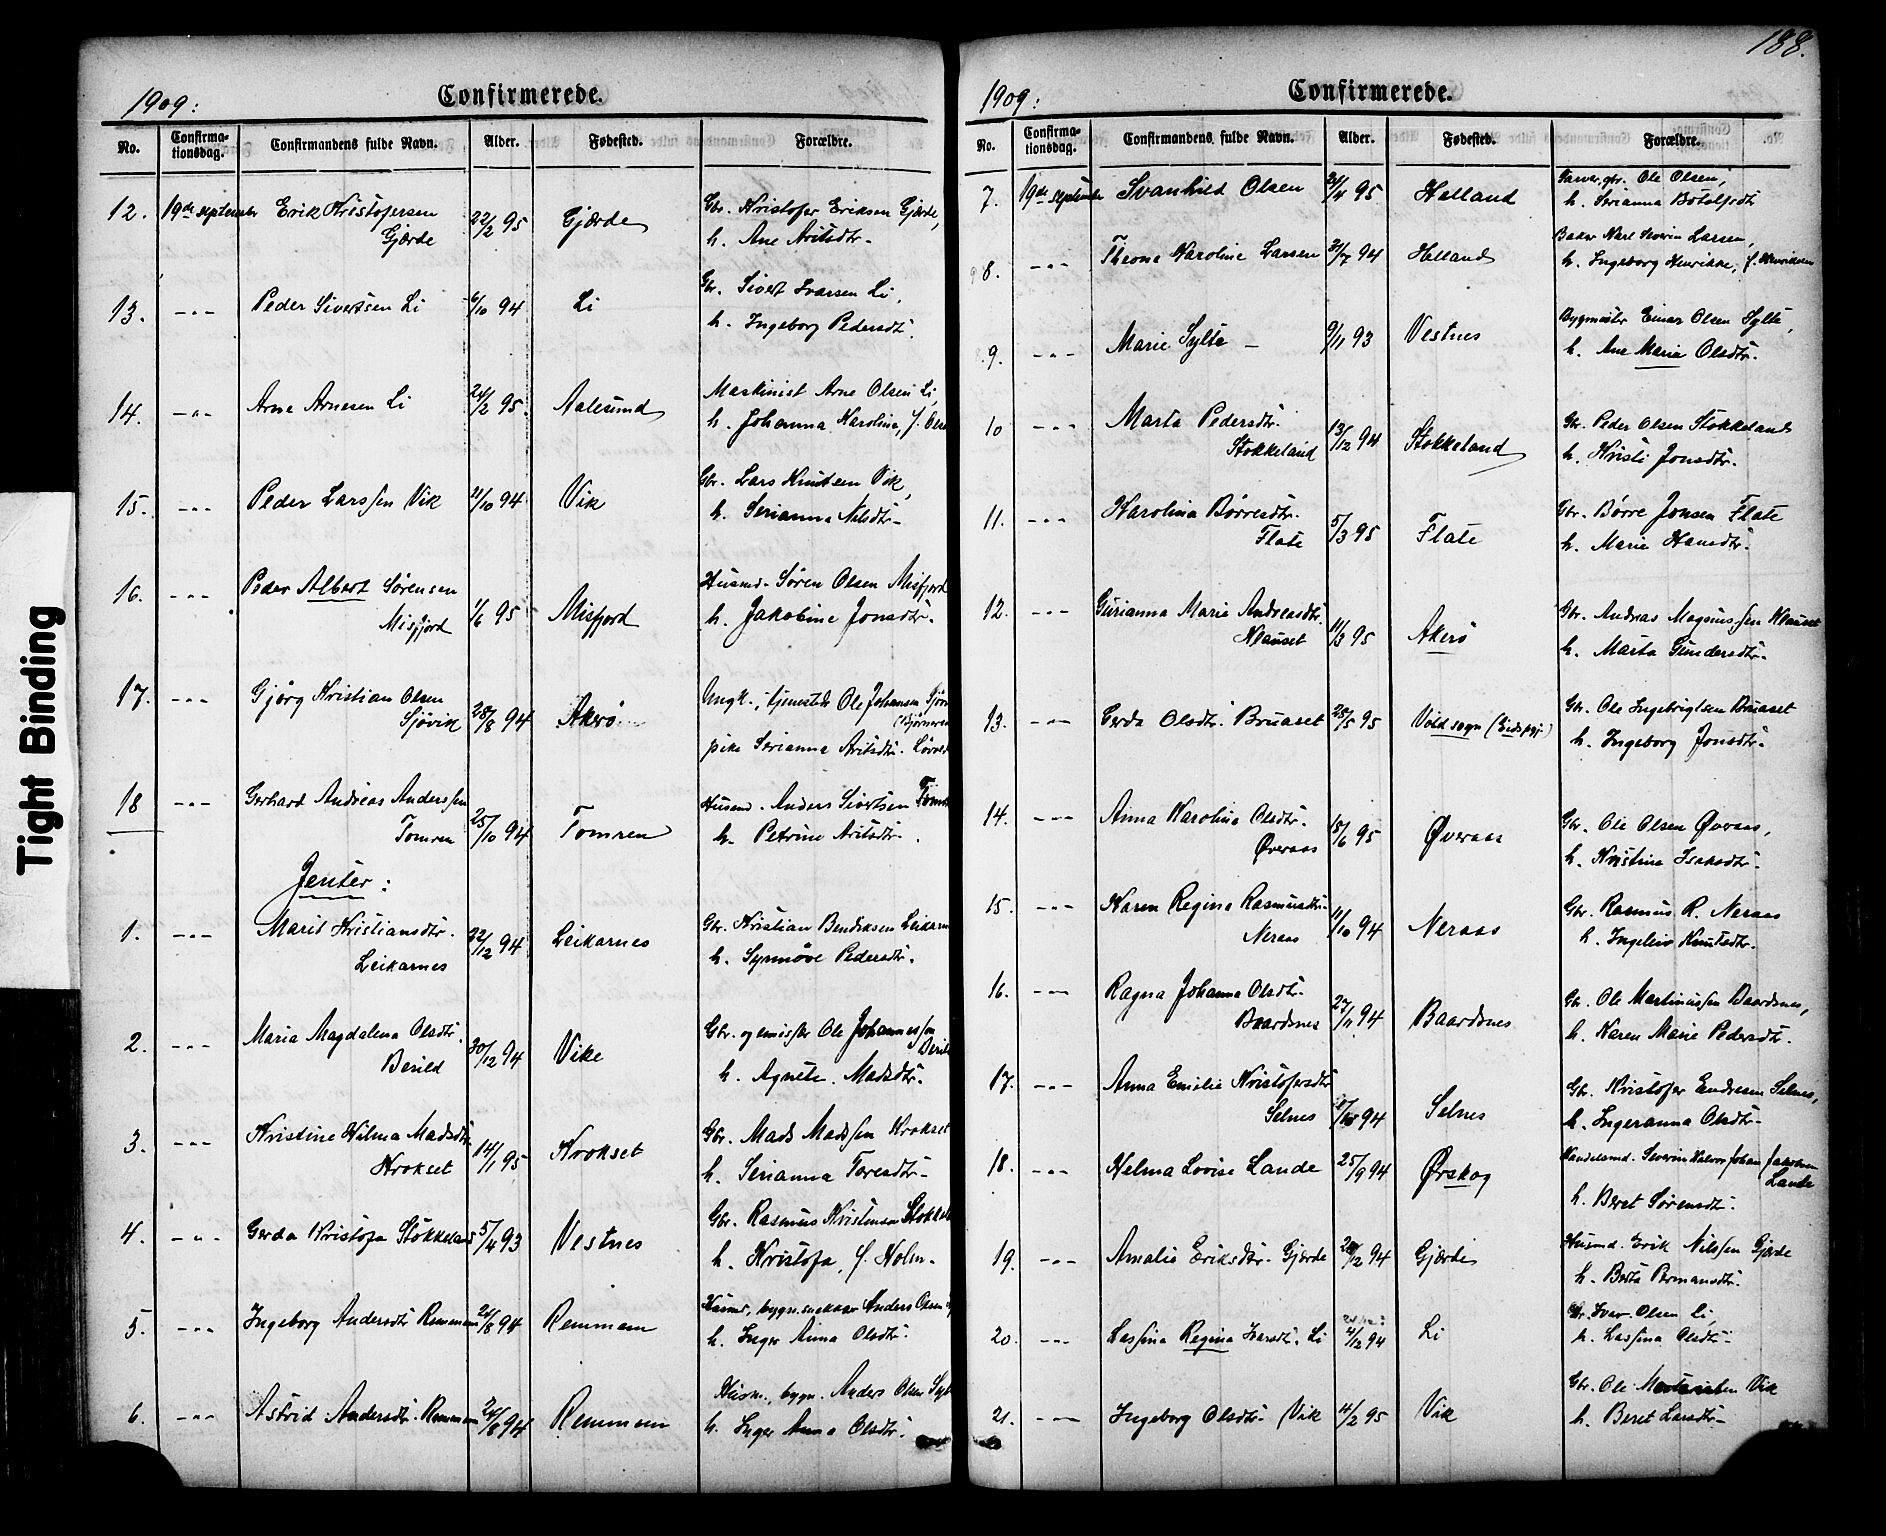 1909:
Confirmerede.
No. Confirma-tionsdag. Confirmandens fulde Navn. Alder. Fødested. Forældre.
12. 19de september Erik Kristofersen 22/2 95 Gjærde Gbr. Kristofer Eriksen Gjærde,
Gjærde h. Ane Arilsdtr.
13. -"- Peder Sivertsen Li 6/10 94 Li Gbr. Sivert Ivarsen Li,
h. Ingeborg Pedersdtr.
14. -"- Arne Arnesen Li 24/2 95. Aalesund Maskinist Arne Olsen Li,
h. Johanna Karolina, f.
15. -"- Peder Larssen Vik 21/10 94 Vik Gbr. Lars Knutsen Vik,
h. Serianna Nilsdtr.
16. -"- Peder Albert Sørensen 1/6 95 Misfjord Husmd. Søren Olsen Misfjord
Misfjord h. Jakobine Jonsdtr.
17. -"- Gjørg Kristian Olsen 28/8 94 Akerø Ungk., tjenestedr. Ole Johansen
Sjøvik
pike Serianna Arilsdtr.
18 -"- Gerhard Andreas Anderssen 25/10 94 Tomren Husmd. Anders Sivertsen
Tomren h. Petrine Arilsdtr.
Jenter:
1. -"- Marit Kristiansdtr. 22/12 94 Leikarnes Gbr. Kristian Bendiksen Leikarn
Leikarnes h. Synnøve Pedersdtr.
2. -"- Maria Magdalena Olsdtr. 30/12 94 Vike Gbr. og emissær Ole Johannessen
Berild h. Agnete Madsdtr.
3. -"- Kristine Hilma Madsdtr. 14/1 95 Krokset Gbr. Mads Madssen Krokset
Krokset h. Serianna Toresdtr.
4. -"- Gerda Kristofa Stokkeland 5/4 93 Vestnes Gbr. Rasmus Kristensen Stokkel
h. Kristofa, f. Holm.
5. -"- Ingeborg Andersdtr. Remmem 24/8 94 Remmem Husmd., bygn.snekker Anders Olsen
h. Inger Anna Olsdtr.
6. -"- Astrid Andersdtr. Remmem 24/8 94 Remmem Husm., bygn. Anders Olsen Sylt
h. Inger Anna Olsdtr.
188.
1909:
Confirmerede.
No. Confirma-tionsdag. Confirmandens fulde Navn. Alder. Fødested. Forældre.
7. 19de september Svanhild Olsen 24/4 95 Helland Garver, gbr. Ole Olsen,
h. Serianna Botolfsdtr
8. -"- Theone Karoline Larsen 31/7 94 Helland Baker Karl Severin Larsen,
h. Ingeborg Henrikke, f. Henriksen
9. -"- Marie Sylte 9/11 93 Vestnes Bygmester Einar Olsen Sylte,
h. Ane Marie Olsdtr.
10 -"- Marta Pedersdtr. 13/12 94 Stokkeland Gbr. Peder Olsen Stokkeland
Stokkeland h. Kristi Jonsdtr.
11. -"- Karolina Børresdtr. 5/3 95 Flate Gbr. Børre Jonsen Flate
Flate h. Marie Hansdtr.
12. -"- Gurianna Marie Andreasdtr. 11/3 95 Akerø Gbr. Andreas Magnussen Klauset
Klauset h. Marta Gundersdtr.
13. -"- Gerda Olsdtr. Bruaset 25/5 95 Vold sogn (Eids pgj.) Gbr. Ole Ingebrigtsen Bruaset
h. Ingeborg Jonsdtr.
14. -"- Anna Karolina Olsdtr. 15/6 95 Øveraas Gbr. Ole Olsen Øveraas,
Øveraas h. Kristine Isaksdtr.
15. -"- Karen Regina Rasmusdtr. 11/10 94 Neraas Gbr. Rasmus R. Neraas
Neraas h. Ingeleiv Knutsdtr.
16. -"- Ragna Johanna Olsdtr. 27/11 94 Baardsnes Gbr. Ole Martinussen Baardsnes,
Baardsnes h. Karen Marie Pedersdtr.
17. -"- Anna Emilie Kristofersdtr Selnes Gbr. Kristofer Endresen Selnes,
Selnes h. Ingeranna Olsdtr.
18. -"- Helma Lovise Lande 25/9 94 Ørskog Handelsmd. Severin Halvor Johan Jakobsen
Lande
h. Beret Sørensdtr.
19. -"- Amalie Eriksdtr. Gjærde Gjærde Husmd. Erik Nilssen Gjærde
h. Berta Bermansdtr.
20. -"- Lassina Regina Ivarsdtr. Li 4/12 94 Li Gbr. Ivar Olsen Li,
h. Lassina Olsdtr.
21. -"- Ingeborg Olsdtr. Vik 4/2 95 Vik Gbr. Ole Vik
h. Beret Larsdtr.
Tight Binding